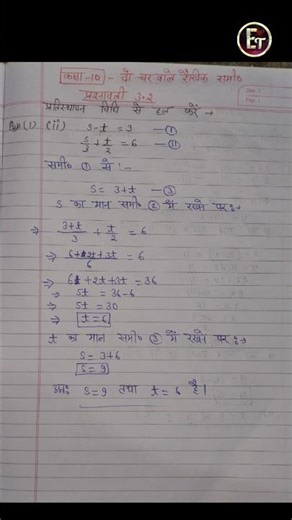 ET
कक्षा-10 - दो चर वाले रैखिक समी०
प्रश्नावली 3.2
प्रतिस्थापन विधि से हल करें →
Que (1) (ii) s-t = 3 —①
s/3 + t/2 = 6 —②
समी० ① से :-
s = 3+t —③
s का मान समी० ② में रखने पर :→
⇒ 3+t/3 + t/2 = 6
⇒ 6+2t+3t/6 = 6
⇒ 6 +2t+3t = 36
⇒ 5t = 36-6
⇒ 5t = 30
⇒ t=6
t का मान समी० ③ में रखने पर :→
s = 3+6
s = 9
अतः s=9 तथा t=6 है।